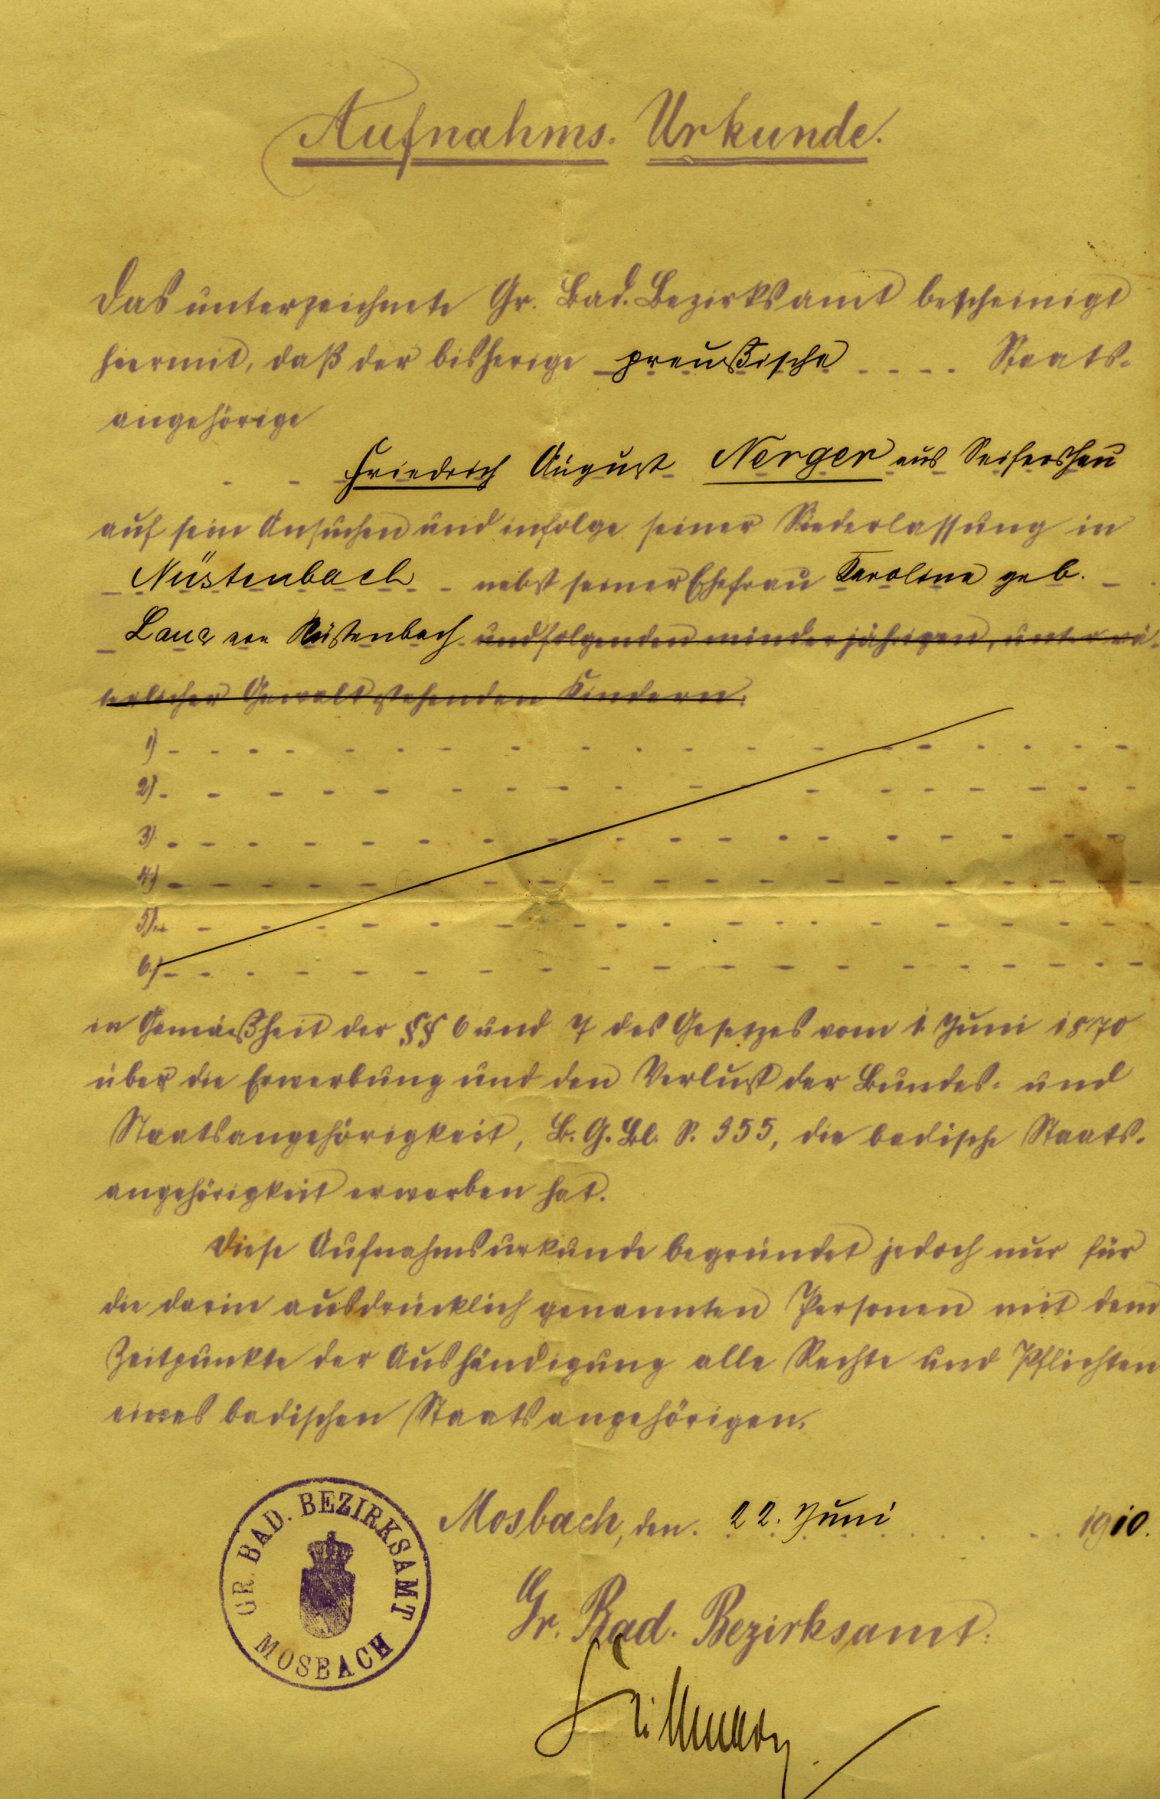 Aufnahms-Urkunde.
Das unterzeichnete Gr. Bad. Bezirksamt bescheinigt
hiermit, daß der bisherige preußische Staats-
angehörige
Friedrich August Nerger aus Seifershau
auf sein Ansuchen und infolge seiner Niederlassung in
Nüstenbach nebst seiner Ehefrau Karoline geb.
von Nüstenbach und folgenden minderjährigen, unter vä-
terlicher Gewalt stehenden Kindern:
1)
2)
3)
4)
5)
6)
in Gemäßheit der §§ 6 und 7 des Gesetzes vom 1. Juni 1870
über die Erwerbung und den Verlust der Bundes- und
Staatsangehörigkeit, B. G. Bl. S. 355, die badische Staats-
angehörigkeit erworben hat.
Diese Aufnahmsurkunde begründet jedoch nur für
die darin ausdrücklich genannten Personen mit dem
Zeitpunkte der Aushändigung alle Rechte und Pflichten
eines badischen Staatsangehörigen.
Mosbach, den 22. Juni 1910.
Gr. Bad. Bezirksamt:
GR. BAD. BEZIRKSAMT
MOSBACH